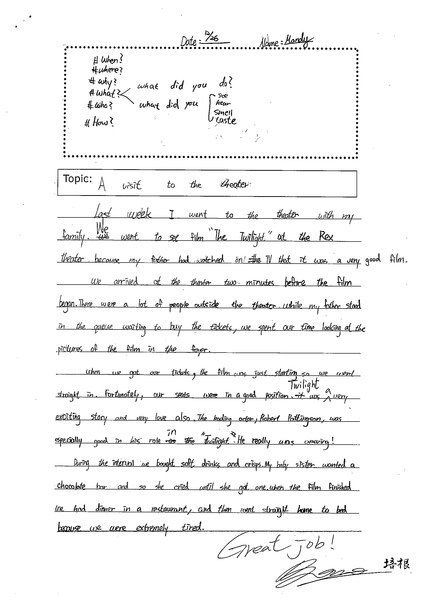 Date: 12/26 Name: Mandy
# When?
# Where?
# Why?
# What? what did you do?
# Who? what did you see
hear
smell
taste
# How?
Topic: A visit to the theater
Last week I went to the theater with my
family. We went to see film "The Twilight" at the Rex
theater because my father had watched on TV that it was a very good film.
We arrived at the theater two minutes before the film
began. There were a lot of people outside the theater. While my father stood
in the queue waiting to buy the tickets, we spent our time looking at the
pictures of the film in the foyer.
When we got our tickets, the film was just starting so we went
straight in. Fortunately, our seats were in a good position. Twilight was a very
exciting story and very love also. The leading actor, Robert Pattingson, was
especially good in his role in the "Twilight". He really was amazing!
During the interval we bought soft drinks and crisps. My baby sister wanted a
chocolate bar and so she cried until she got one. When the film finished
we had dinner in a restaurant, and then went straight home to bed
because we were extremely tired.
Great job!
培根